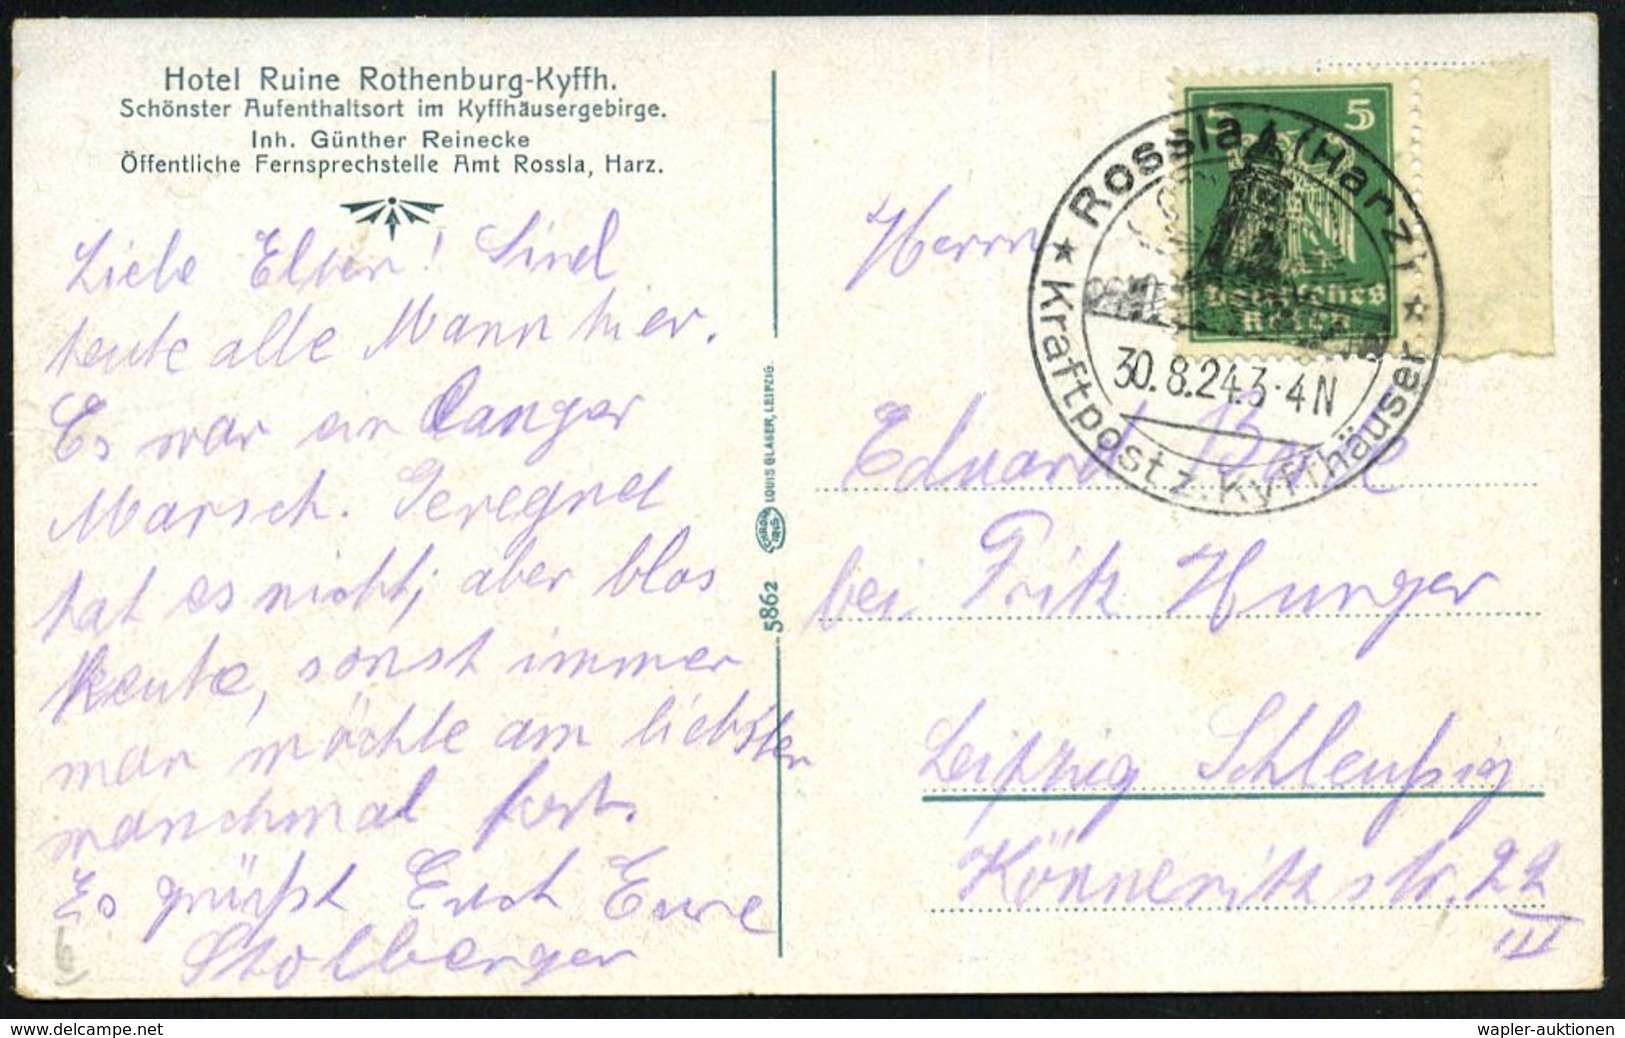 Hotel Ruine Rothenburg-Kyffh.
Schönster Aufenthaltsort im Kyffhäusergebirge.
Inh. Günther Reinecke
Öffentliche Fernsprechstelle Amt Rossla, Harz.
Liebe Eltern! Sind
heute alle Mann hier.
Es war ein langer
Marsch. Geregnet
hat es nicht, aber blos
heute, sonst immer
man möchte am liebsten
manchmal fort.
Es grüßt Euch Eure
Stolberger
LOUIS GLASER, LEIPZIG.
5862
5
Deutsches
Reich
Rossla (Harz)
30.8.24.3-4N
Kraftpost z. Kyffhäuser
Herrn
Eduard
bei Fritz Hunger
Leipzig Schleußig
Könneritz str. 22
III
b
© www.delcampe.net
wapler-auktionen